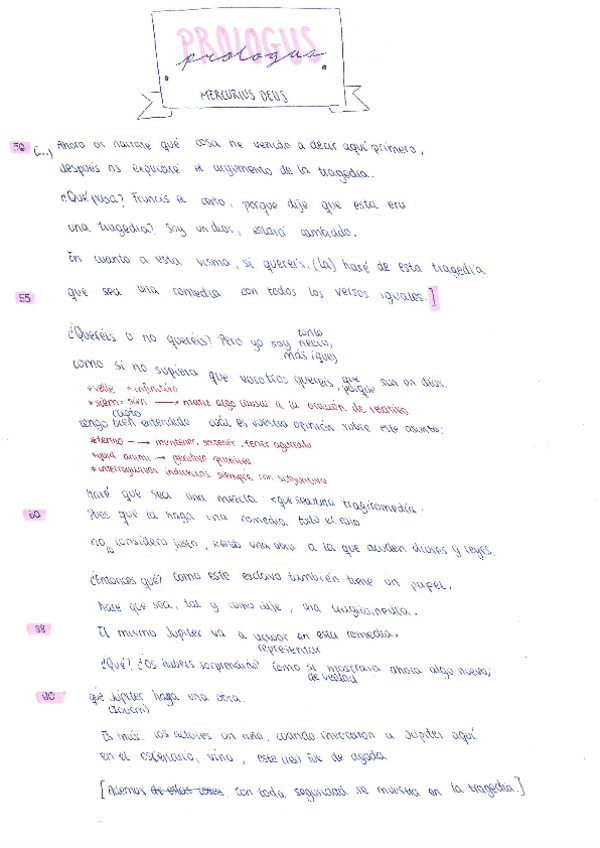 PROLOGUS
prologus
MERCURIUS DEUS
50 (...) Ahora os narraré qué cosa he venido a decir aquí primero,
después os explicaré el argumento de la tragedia.
¿Qué pasa? Fruncís el ceño, porque dije que esta era
una tragedia? Soy un dios, estará cambiado.
En cuanto a esta misma, si queréis, (la) haré de esta tragedia
55 que sea una comedia con todos los versos iguales.]
¿Queréis o no queréis? Pero yo soy necio,
tonto
más (que)
como si no supiera que vosotros queréis, que son un dios.
porque
*velle = infinitivo
*siem= sien → matiz algo causal a la oración de
tengo bien entendido cuál es vuestra opinión sobre este asunto:
*teneo → mantener, sostener, tener agarrado
*quid animi → genitivo partitivo
*interrogativas indirectas siempre con subjuntivo
haré que sea una mezcla: que sea una tragicomedia.
60 Pues que la haga una comedia, todo el rato
no lo considero justo, siendo una obra a la que acuden dioses y reyes.
¿Entonces qué? Como este esclavo también tiene un papel,
haré que sea, tal y como dije, una tragicomedia.
88 El mismo Júpiter va a actuar en esta comedia.
representar
¿Qué? ¿Os habéis sorprendido? Como si mostrara ahora algo nuevo;
de verdad
90 que Júpiter haga una obra.
(Iovem)
Es más, los actores un año, cuando invocaron a Júpiter aquí
en el escenario, vino, este (les) fue de ayuda.
[Además de estas cosas, con toda seguridad se muestra en la tragedia.]